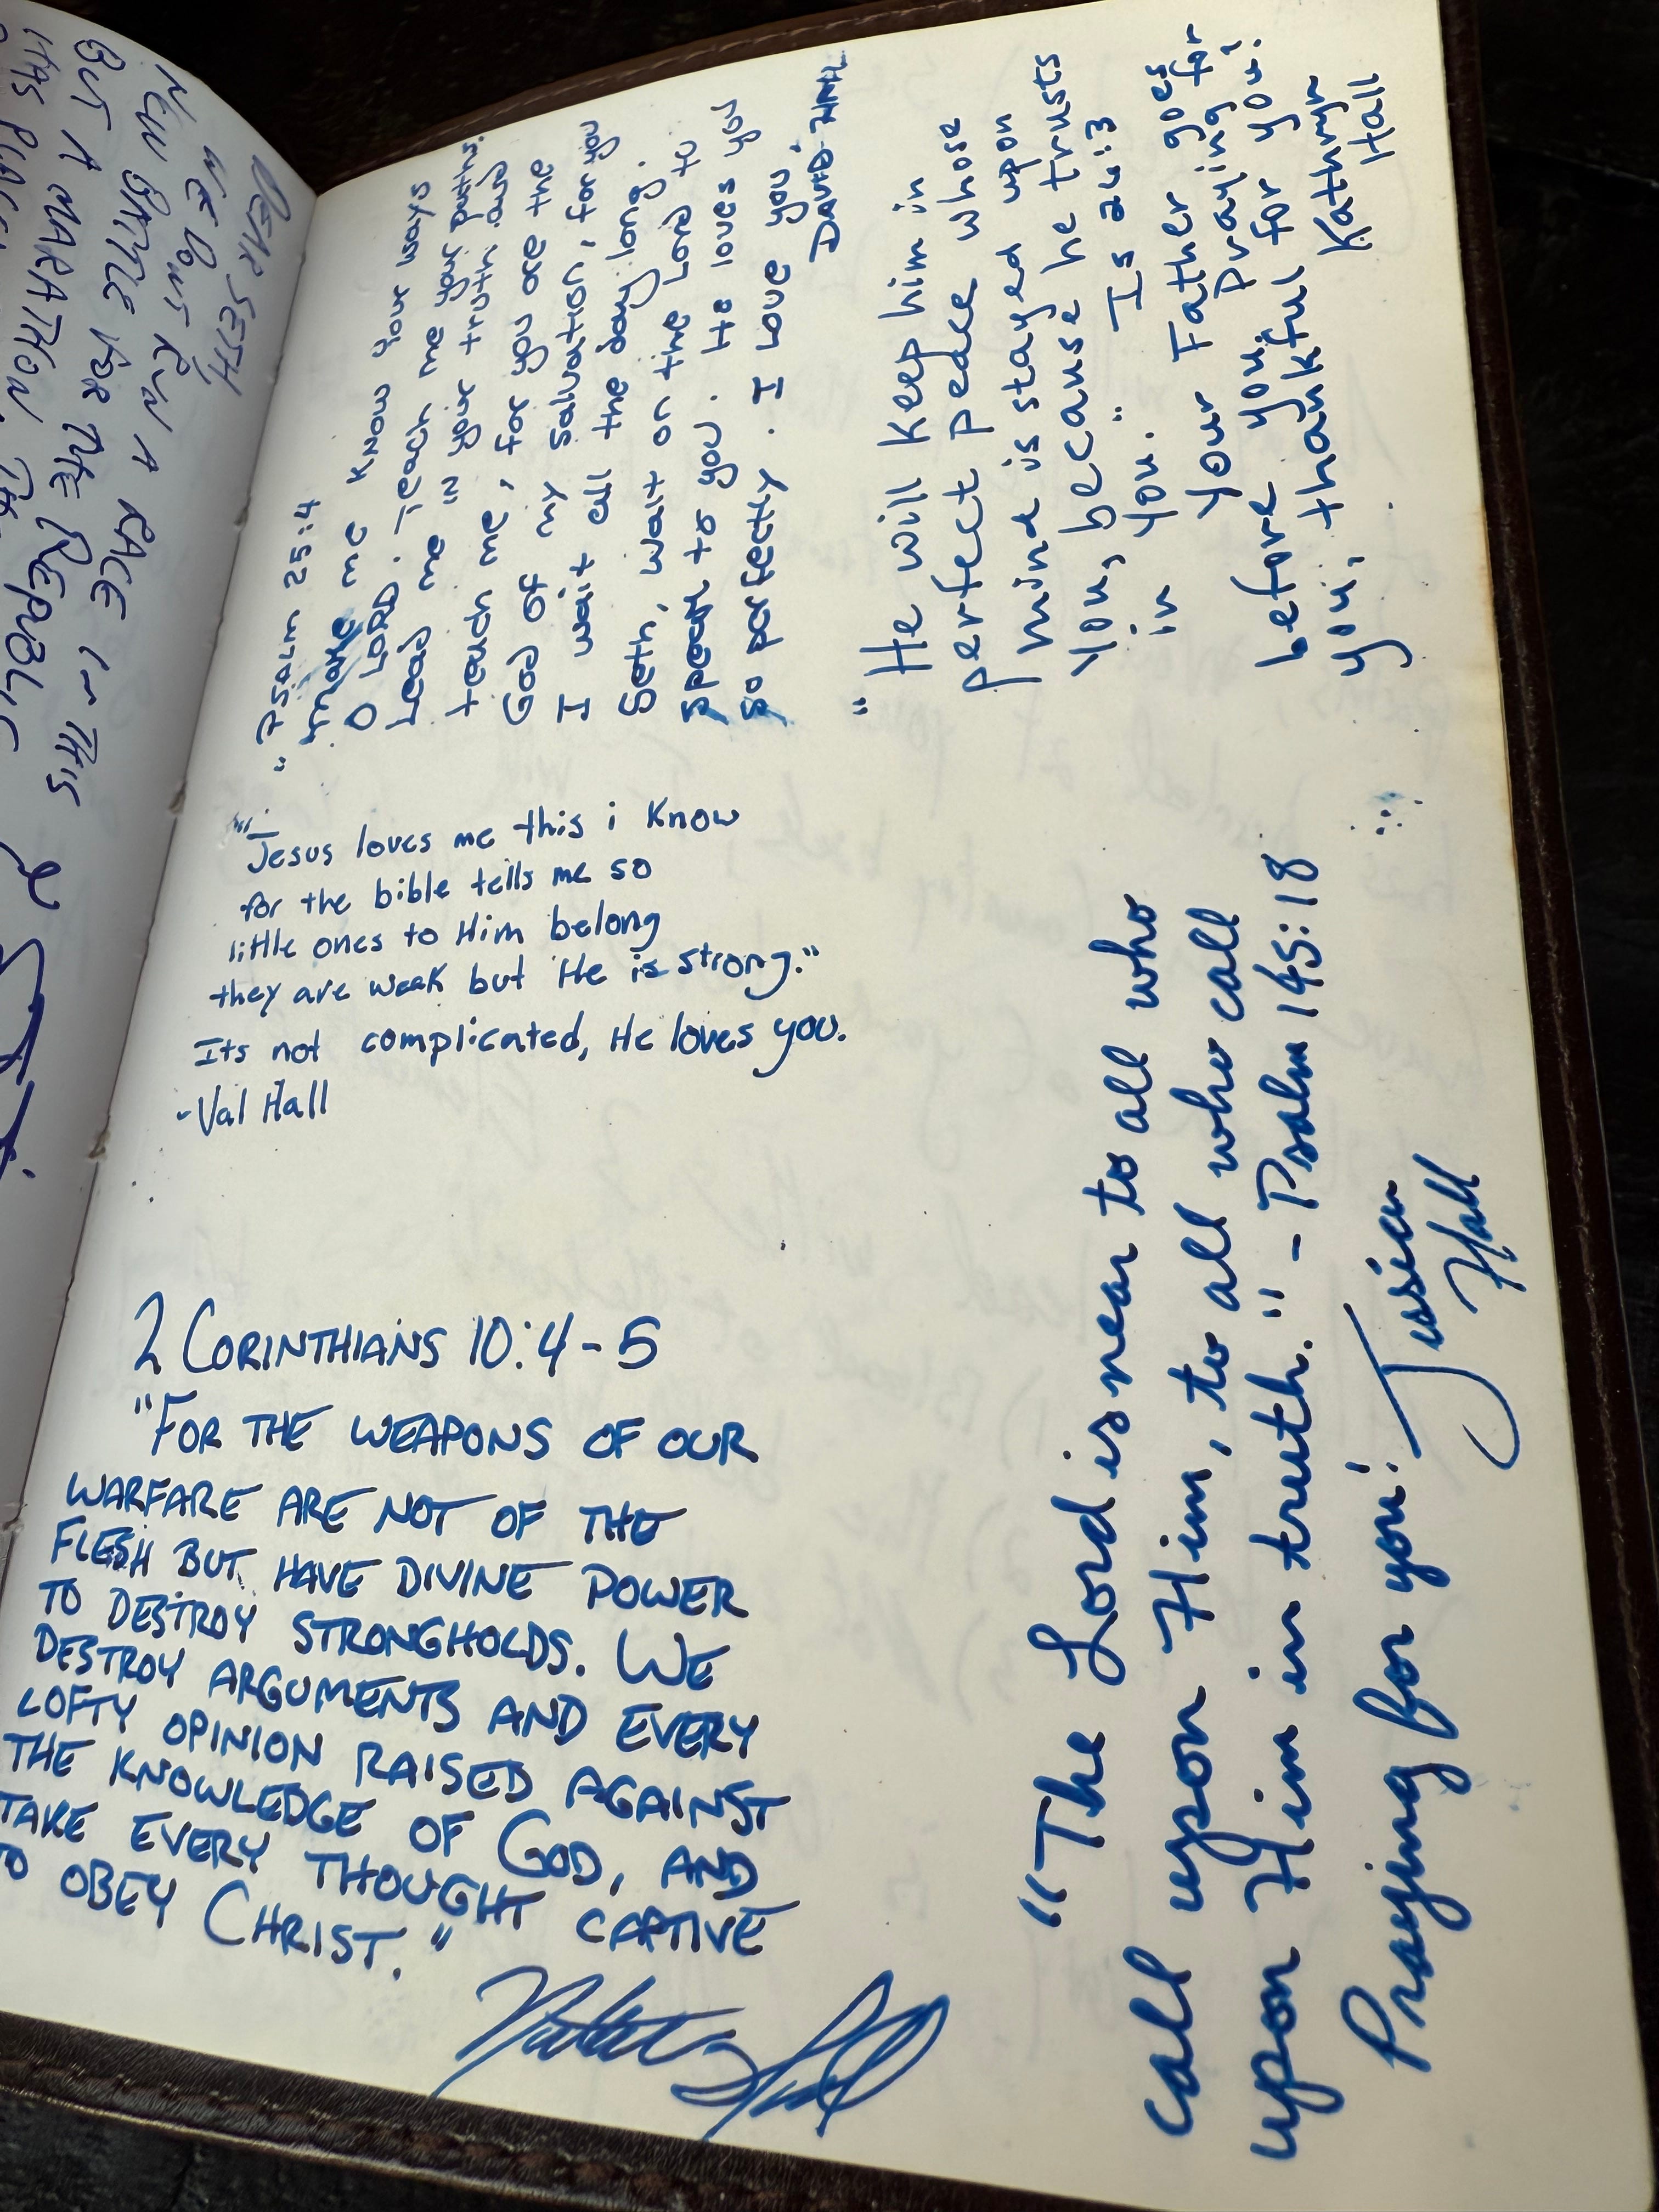 DEAR SETH
WE DON'T RUN A RACE IN THIS
NEW BATTLE FOR THE REPUBLIC
BUT A MARATHON. THE
HAS PLACE
"Psalm 25:4
make me know your ways
O LORD. Teach me your paths.
Lead me in your truth and
teach me, for you are the
God of my salvation, for you
I wait all the day long.
Seth, wait on the Lord to
speak to you. He loves you
so perfectly. I love you,
DAVID HALL
"He will keep him in
perfect peace whose
mind is stayed upon
You, because he trusts
in You." Is 26:3
Your Father goes
before you. Praying for
you, thankful for you!
Kathryn
Hall
"Jesus loves me this i know
for the bible tells me so
little ones to Him belong
they are weak but He is strong."
Its not complicated, He loves you.
-Val Hall
2 CORINTHIANS 10:4-5
"FOR THE WEAPONS OF OUR
WARFARE ARE NOT OF THE
FLESH BUT HAVE DIVINE POWER
TO DESTROY STRONGHOLDS. WE
DESTROY ARGUMENTS AND EVERY
LOFTY OPINION RAISED AGAINST
THE KNOWLEDGE OF GOD, AND
TAKE EVERY THOUGHT CAPTIVE
TO OBEY CHRIST."
"The Lord is near to all who
call upon Him, to all who call
upon Him in truth." - Psalm 145:18
Praying for you!
Hall